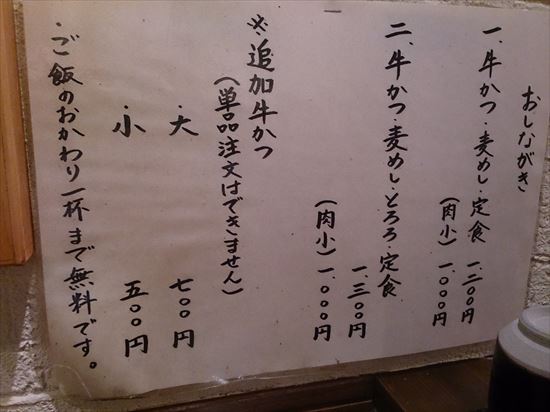 おしながき
一、牛かつ・麦めし・定食 一、二〇〇円
(肉小) 一、〇〇〇円
二、牛かつ・麦めし・とろろ・定食
一、三〇〇円
(肉小) 一、〇〇〇円
※追加牛かつ
(単品注文はできません)
・大 七〇〇円
・小 五〇〇円
・ご飯のおかわり一杯まで無料です。